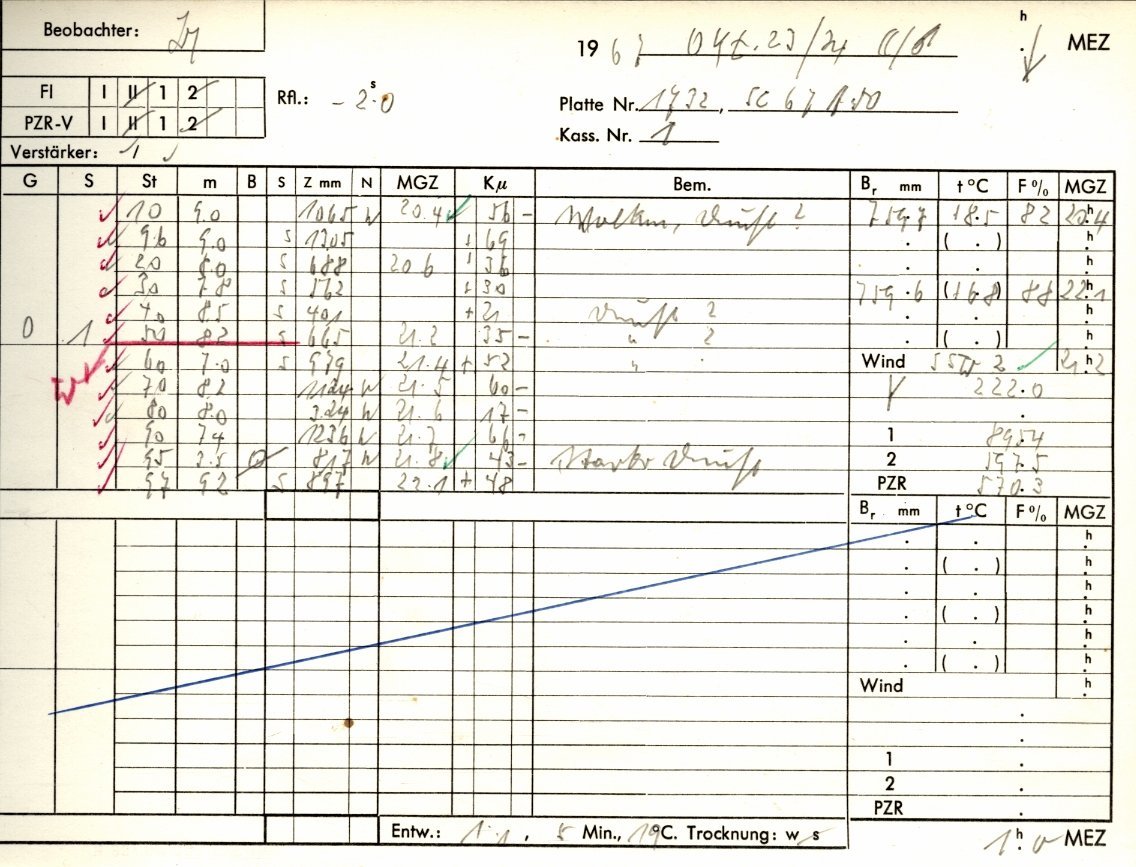 Beobachter:
19 67 23/24 MEZ
FI I II 1 2
PZR-V I II 1 2
Rfl.: - 2.ˢ0
Platte Nr. 1732, SC 67
Kass. Nr. 1
Verstärker: 1
G S St m B S Z mm N MGZ Kμ Bem.
10 9.0 1065 N 20.4 56 - Wolken, Dunst ?
96 9.0 S 1305 + 69
20 8.0 S 688 20.6 + 36
30 7.8 S 562 + 30
40 8.5 S 401 + 21 Dunst ?
0 1 50 8.2 S 665 21.2 35 - " ?
60 7.0 S 979 21.4 + 52 "
70 8.2 1124 N 21.5 60 -
80 8.0 324 N 21.6 17 -
90 7.4 1236 N 21.7 66 -
95 3.5 817 N 21.8 43 - Starker Dunst
97 9.2 S 897 22.1 + 48
W
Br mm t °C F % MGZ
759.7 18.5 82 20.ʰ4
( . ) h
759.6 (16.8) 88 22.ʰ1
( . ) h
Wind SSW 2 21.ʰ2
222.0
1 895.4
2 597.5
PZR 570.3
Br mm t °C F % MGZ
. . h
. ( . ) h
. . h
. ( . ) h
. . h
. ( . ) h
Wind h
1 .
2 .
PZR .
Entw.: 1:1, 5 Min., 19°C. Trocknung: w s
1ʰ.0 MEZ